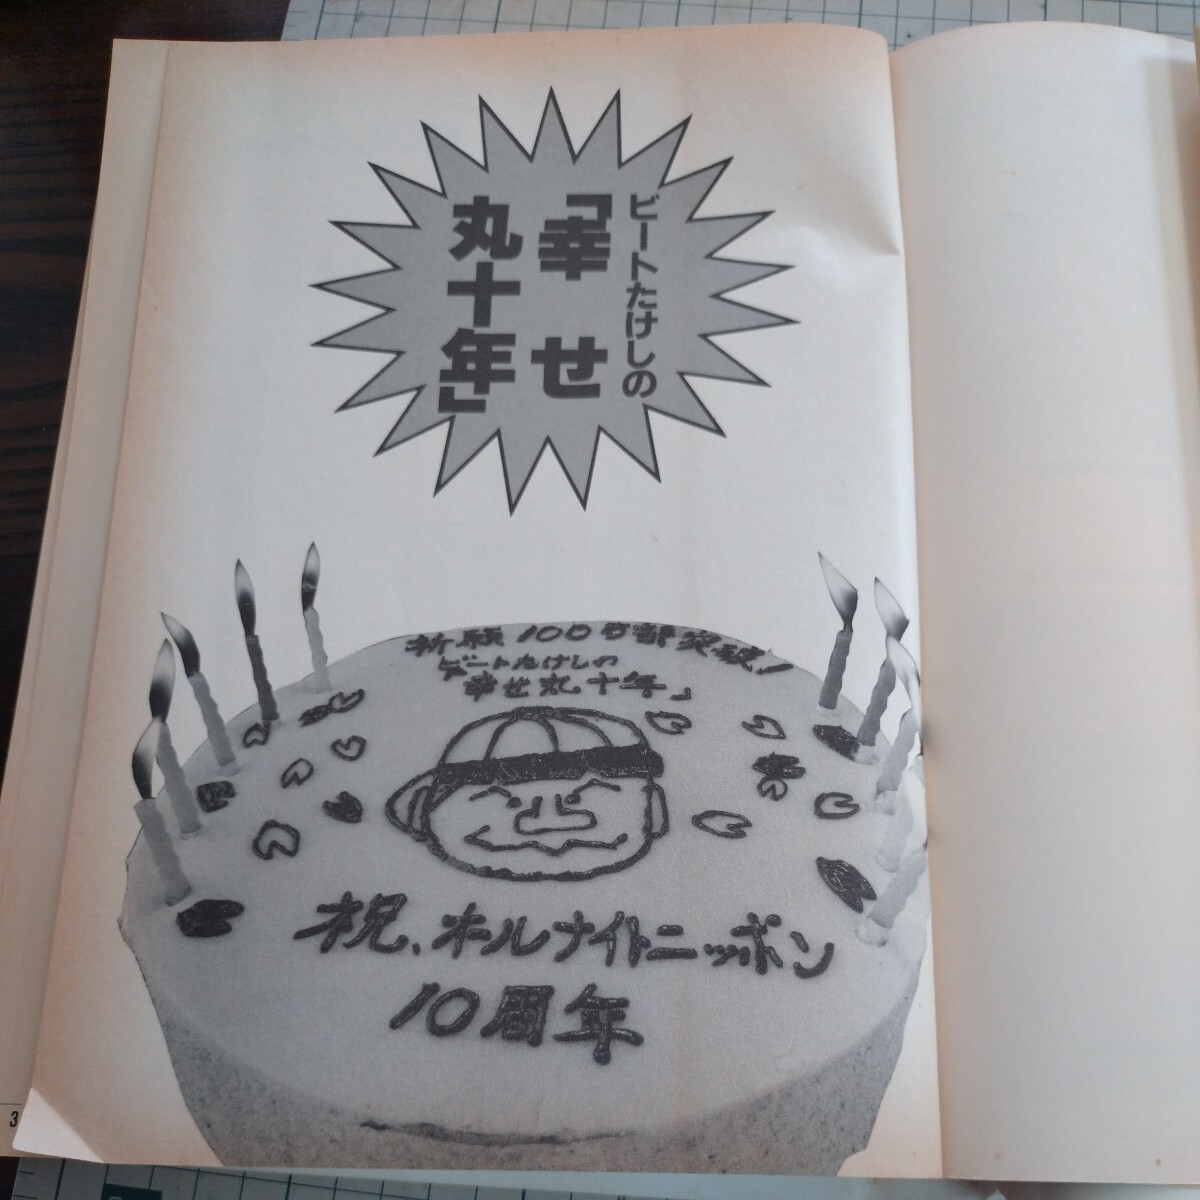 ビートたけしの
「幸せ
丸十年」
祈願100万部突破!
ビートたけしの
幸せ丸十年」
祝、オールナイトニッポン
10周年
3